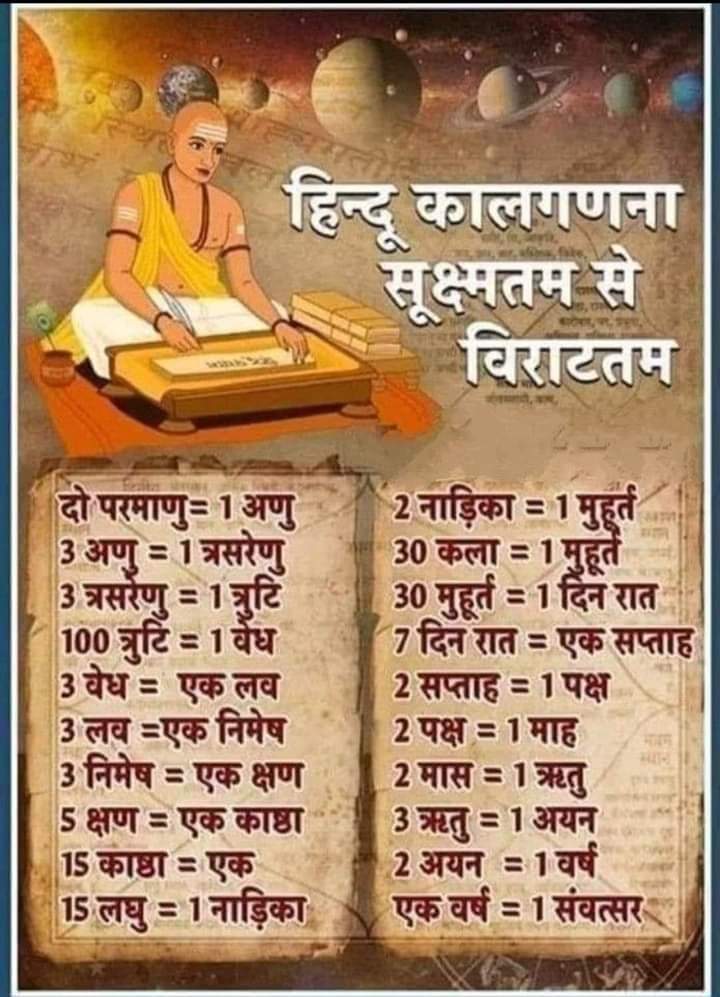 हिन्दू कालगणना
सूक्ष्मतम से
विराटतम
दो परमाणु= 1 अणु
3 अणु = 1 त्रसरेणु
3 त्रसरेणु = 1 त्रुटि
100 त्रुटि = 1 वेध
3 वेध = एक लव
3 लव =एक निमेष
3 निमेष = एक क्षण
5 क्षण = एक काष्ठा
15 काष्ठा = एक
15 लघु = 1 नाड़िका
2 नाड़िका = 1 मुहूर्त
30 कला = 1 मुहूर्त
30 मुहूर्त = 1 दिन रात
7 दिन रात = एक सप्ताह
2 सप्ताह = 1 पक्ष
2 पक्ष = 1 माह
2 मास = 1 ऋतु
3 ऋतु = 1 अयन
2 अयन = 1 वर्ष
एक वर्ष = 1 संवत्सर